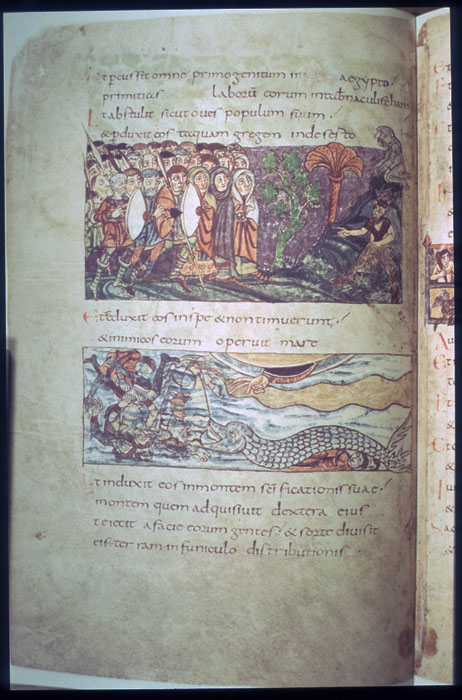 Et percussit omne primogenitum in aegypto
primitias laborū eorum intabernaculis cham
Et abstulit sicut oves populum suum
& pduxit eos taquam gregem indeserto
Et eduxit eos inspe & nontimuerunt
& inimicos eorum operuit mare
Et induxit eos inmontem sc̄ificationis suae
montem quem adquisivit dextera eius
& eiecit a facie eorum gentes & sorte divisit
eis terram in funiculo distributionis